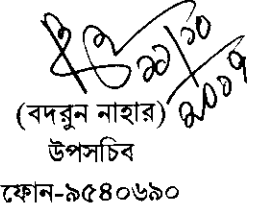 ২১/১০
২০০৭
(বদরুন নাহার)
উপসচিব
ফোন-৯৫৪০৬৯০